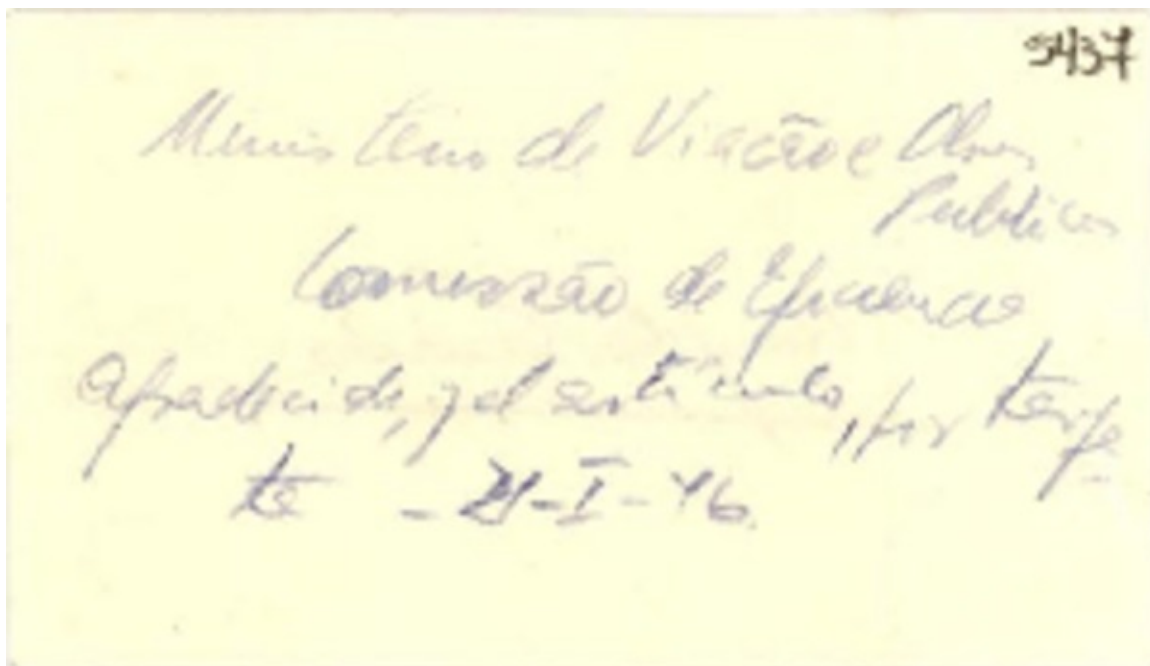 5437
Ministerio de Viação e Obras
Publicas
Comissão de Eficiencia
Agradecido, pel
te - 21-I-46.